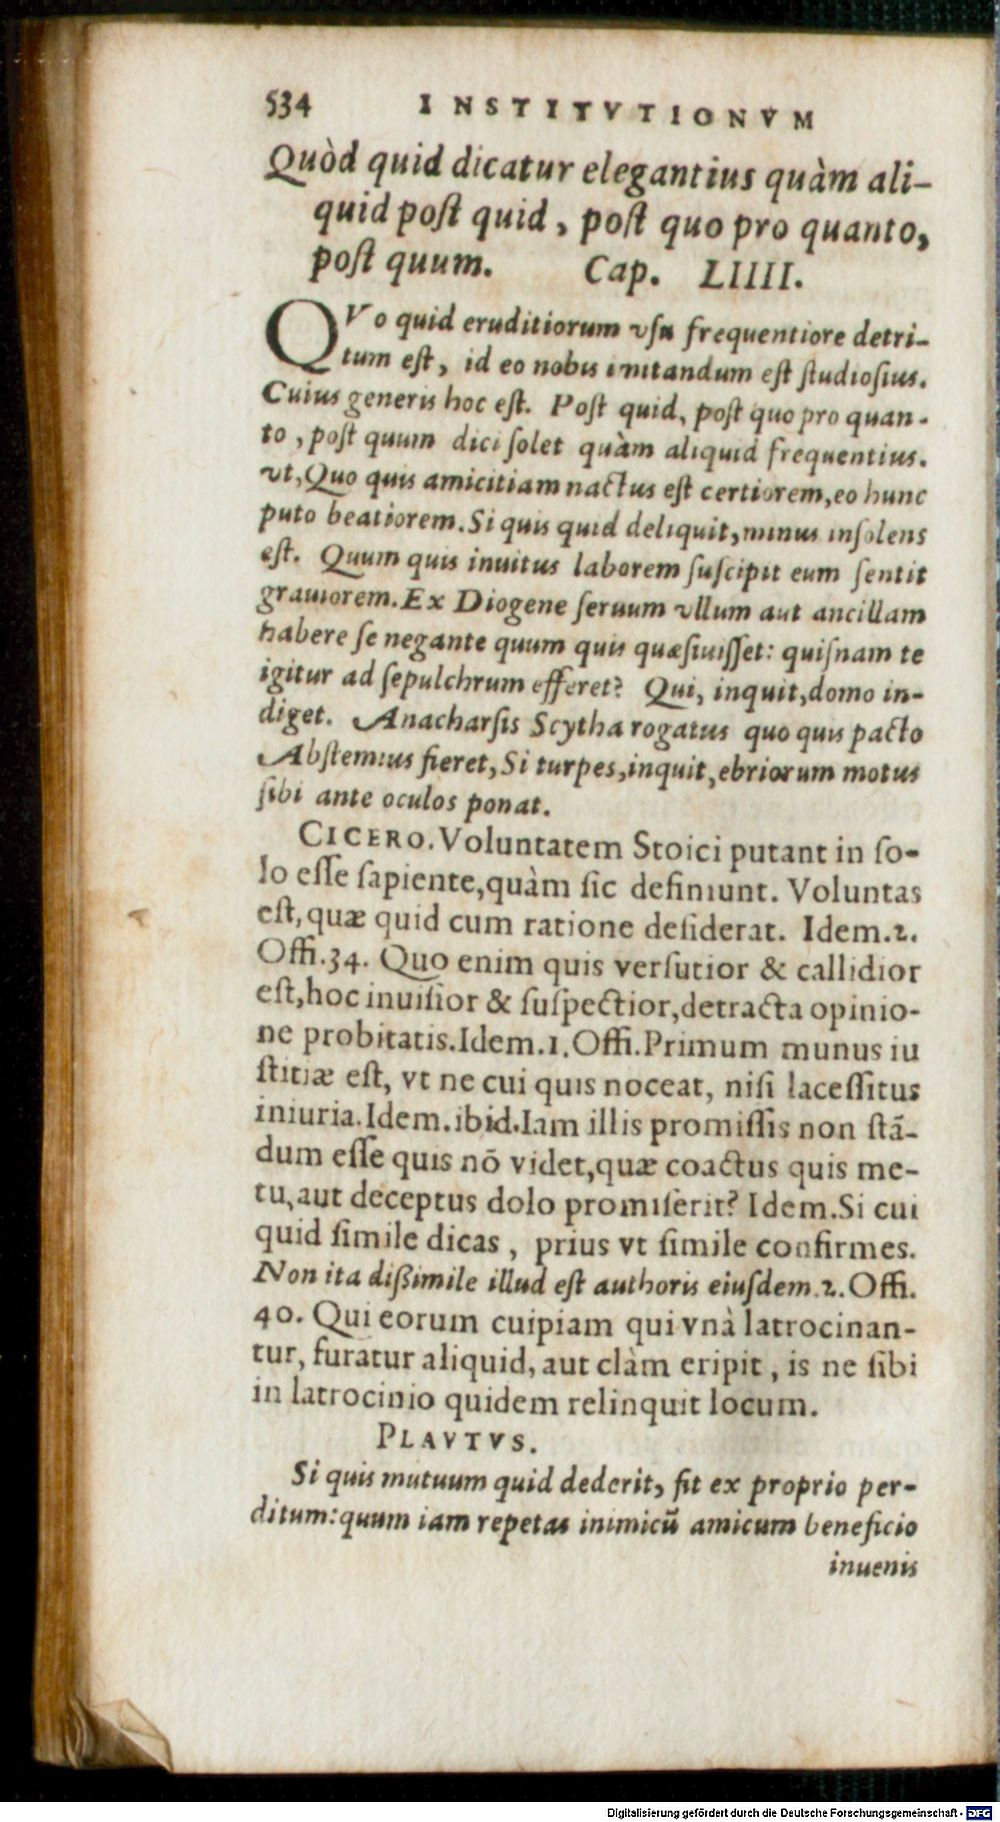 534 INSTITVTIONVM
Quòd quid dicatur elegantius quàm ali-
quid poſt quid, poſt quo pro quanto,
poſt quum. Cap. LIIII.
QVo quid eruditiorum vſu frequentiore detri-
tum eſt, id eo nobis imitandum eſt ſtudioſius.
Cuius generis hoc eſt. Poſt quid, poſt quo pro quan-
to, poſt quum dici ſolet quàm aliquid frequentius.
vt, Quo quis amicitiam nactus eſt certiorem, eo hunc
puto beatiorem. Si quis quid deliquit, minus inſolens
eſt. Quum quis inuitus laborem ſuſcipit eum ſentit
grauiorem. Ex Diogene ſeruum vllum aut ancillam
habere ſe negante quum quis quæſiuiſſet: quiſnam te
igitur ad ſepulchrum efferet? Qui, inquit, domo in-
diget. Anacharſis Scytha rogatus quo quis pacto
Abſtemius fieret, Si turpes, inquit, ebriorum motus
ſibi ante oculos ponat.
CICERO. Voluntatem Stoici putant in ſo-
lo eſſe ſapiente, quàm ſic definiunt. Voluntas
eſt, quæ quid cum ratione deſiderat. Idem. 2.
Offi. 34. Quo enim quis verſutior & callidior
eſt, hoc inuiſior & ſuſpectior, detracta opinio-
ne probitatis. Idem. 1. Offi. Primum munus iu
ſtitiæ eſt, vt ne cui quis noceat, niſi laceſſitus
iniuria. Idem. ibid. Iam illis promiſſis non ſtā-
dum eſſe quis nō videt, quæ coactus quis me-
tu, aut deceptus dolo promiſerit? Idem. Si cui
quid ſimile dicas, prius vt ſimile confirmes.
Non ita dißimile illud eſt authoris eiuſdem. 2. Offi.
40. Qui eorum cuipiam qui vnà latrocinan-
tur, furatur aliquid, aut clàm eripit, is ne ſibi
in latrocinio quidem relinquit locum.
PLAVTVS.
Si quis mutuum quid dederit, fit ex proprio per-
ditum: quum iam repetas inimicū amicum beneficio
inuenis
Digitalisierung gefördert durch die Deutsche Forschungsgemeinschaft - DFG